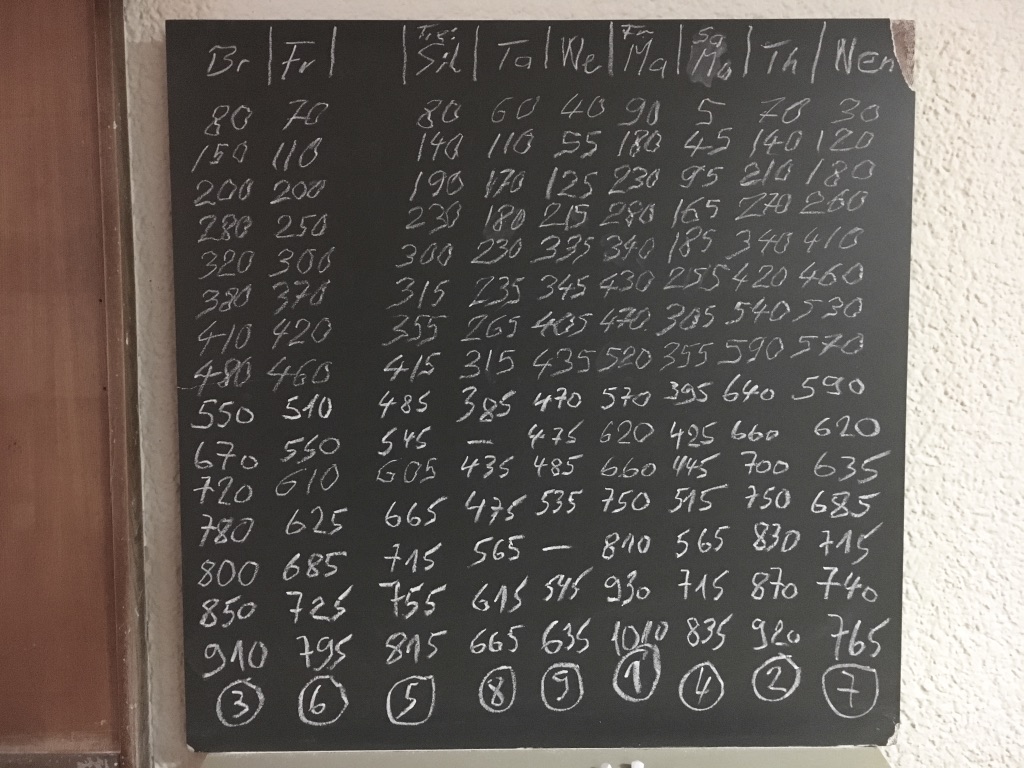 Br | Fr | | Sil | Ta | We | Ma | Mo | Th | Nen
80 70 80 60 40 90 5 70 30
150 110 140 110 55 180 45 140 120
200 200 190 170 125 230 95 210 180
280 250 230 180 215 280 165 270 260
320 300 300 230 335 390 185 340 410
380 370 315 235 345 430 255 420 460
410 420 355 265 405 470 305 540 530
480 460 415 315 435 520 355 590 570
550 510 485 385 470 570 395 640 590
670 550 545 – 475 620 425 660 620
720 610 605 435 485 660 445 700 635
780 625 665 475 535 750 515 750 685
800 685 715 565 – 810 565 830 715
850 725 755 615 545 930 715 870 740
910 795 815 665 635 1010 835 920 765
3 6 5 8 9 1 4 2 7